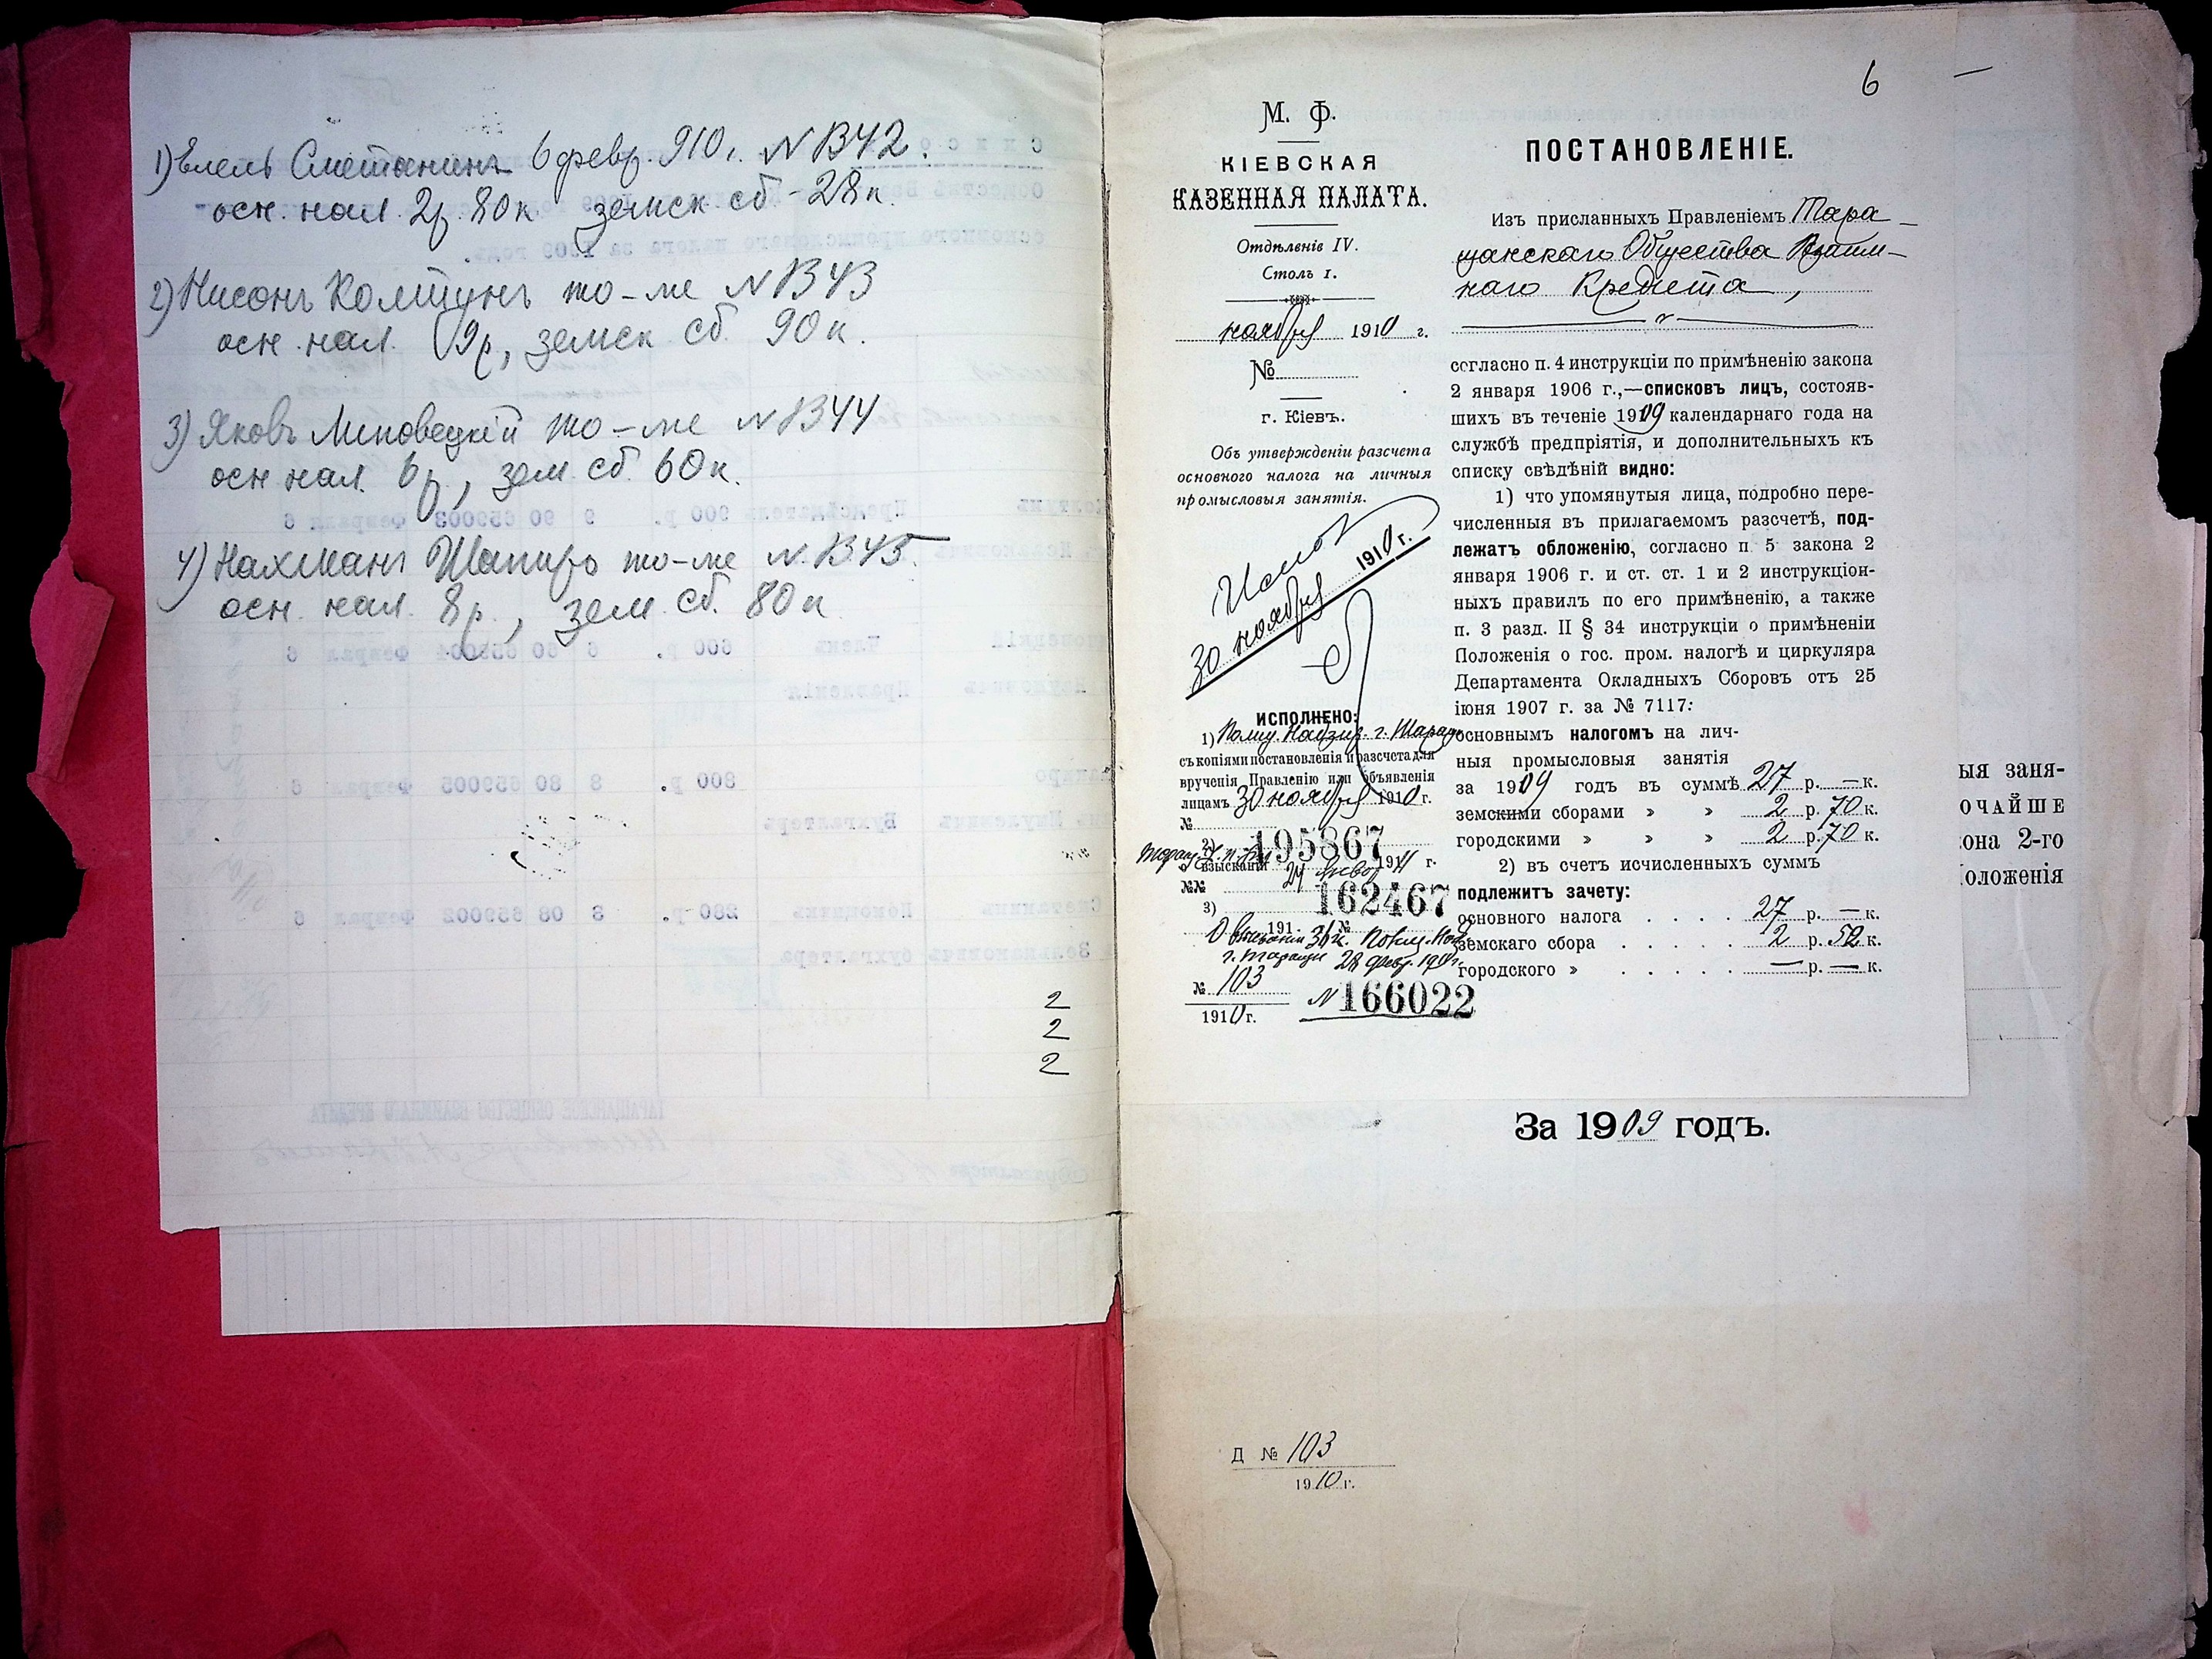 1) Елель Сметанинъ 6 февр. 910 г. N 1342.
осн. нал. 2р. 80к земск сб - 28к.
2) Нисонъ Колтунъ то-же N 1343
осн. нал. 9р, земск сб. 90 к.
3) Яковъ Липовецкій то-же N 1344
осн нал. 6р, зем сб 60к.
4) Нахманъ Шапиро то-же N. 1345.
осн. нал. 8р., зем. сб. 80 к
2
2
2
6
М. Ф.
КІЕВСКАЯ
КАЗЕННАЯ ПАЛАТА.
Отдѣленіе IV.
Столъ 1.
ноября 1910 г.
№
г. Кіевъ.
Объ утвержденіи разсчета
основного налога на личныя
промысловыя занятія.
30 ноября 1910 г.
ИСПОЛНЕНО:
1) Помщ. Надзир. г. Таращ
съ копіями постановленія и разсчета для
врученія Правленію или объявленія
лицамъ 30 ноября 1910 г.
№ 195867
2)
о взысканіи 24 янвор 1911 г.
№№ 162467
3)
191 №
О взысканіи 31к. Помщ. Над
г. Таращи 28 февр. 1911г.
№ 103
1910 г.
N 166022
ПОСТАНОВЛЕНІЕ.
Изъ присланныхъ Правленіемъ Тара-
щанскаго Общества Взаим-
наго Кредита,
согласно п. 4 инструкціи по примѣненію закона
2 января 1906 г.,—списковъ лицъ, состояв-
шихъ въ теченіе 1909 календарнаго года на
службѣ предпріятія, и дополнительныхъ къ
списку свѣдѣній видно:
1) что упомянутыя лица, подробно пере-
численныя въ прилагаемомъ разсчетѣ, под-
лежатъ обложенію, согласно п. 5 закона 2
января 1906 г. и ст. ст. 1 и 2 инструкціон-
ныхъ правилъ по его примѣненію, а также
п. 3 разд. II § 34 инструкціи о примѣненіи
Положенія о гос. пром. налогѣ и циркуляра
Департамента Окладныхъ Сборовъ отъ 25
іюня 1907 г. за № 7117:
основнымъ налогомъ на лич-
ныя промысловыя занятія
за 1909 годъ въ суммѣ 27 р. — к.
земскими сборами » » 2 р. 70 к.
городскими » » 2 р. 70 к.
2) въ счетъ исчисленныхъ суммъ
подлежитъ зачету:
основного налога . . . . 27 р. — к.
земскаго сбора . . . . . 2 р. 52 к.
городского » . . . . . — р. — к.
ыя заня-
ОЧАЙШЕ
она 2-го
оложенія
За 1909 годъ.
Д № 103
1910 г.